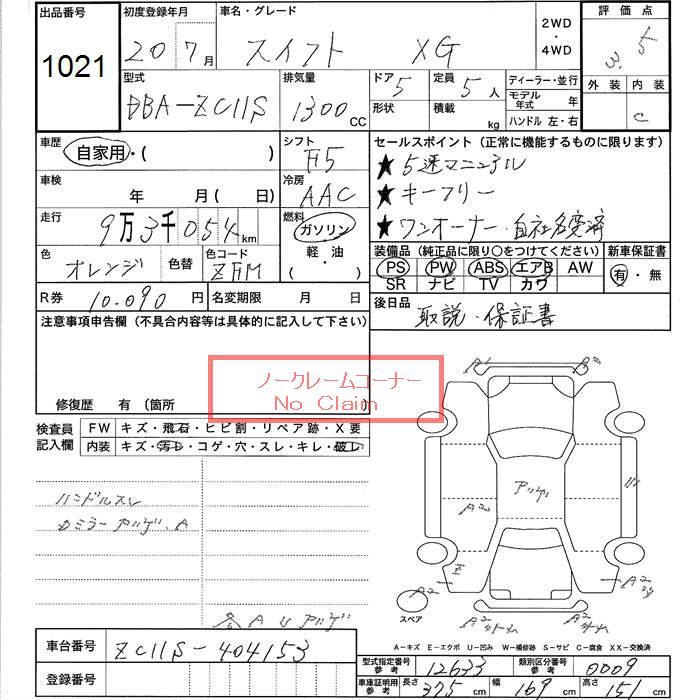 出品番号 初度登録年月 車名・グレード 評価点
1021 20 7月 スイフト XG 2WD・4WD 3.5
型式 排気量 ドア 5 定員 5人 ディーラー・並行 外装 内装
DBA-ZC11S 1300CC 形状 積載 kg モデル年式 年 C
ハンドル 左・右
車歴 シフト セールスポイント（正常に機能するものに限ります）
自家用・（ ） F5 ★5速マニュアル
車検 冷房 ★キーフリー
年 月（ 日） AAC ★ワンオーナー・自社名変済
走行 燃料 装備品（純正品に限り○をつけてください） 新車保証書
9万3千054km ガソリン PS PW ABS エアB AW 有・無
色 色替 色コード 軽・油 SR ナビ TV カワ
オレンジ ・（ ）
R券 10.090円 名変期限 月 日 後日品
注意事項申告欄（不具合内容等は具体的に記入して下さい） 取説・保証書
ノークレームコーナー
No Claim
修復歴 有（箇所
検査員記入欄 FW キズ・飛石・ヒビ割・リペア跡・X要
内装 キズ・汚レ・コゲ・穴・スレ・キレ・破レ
ハンドルスレ
A1
A2
スペア
A-キズ E-エクボ U-凹み W-補修跡 S-サビ C-腐食 XX-交換済
車台番号 ZC11S-404153
型式指定番号参考 12633 類別区分番号参考 0009
登録番号
車庫証明用参考 長さ 375cm 幅 169cm 高さ 151cm